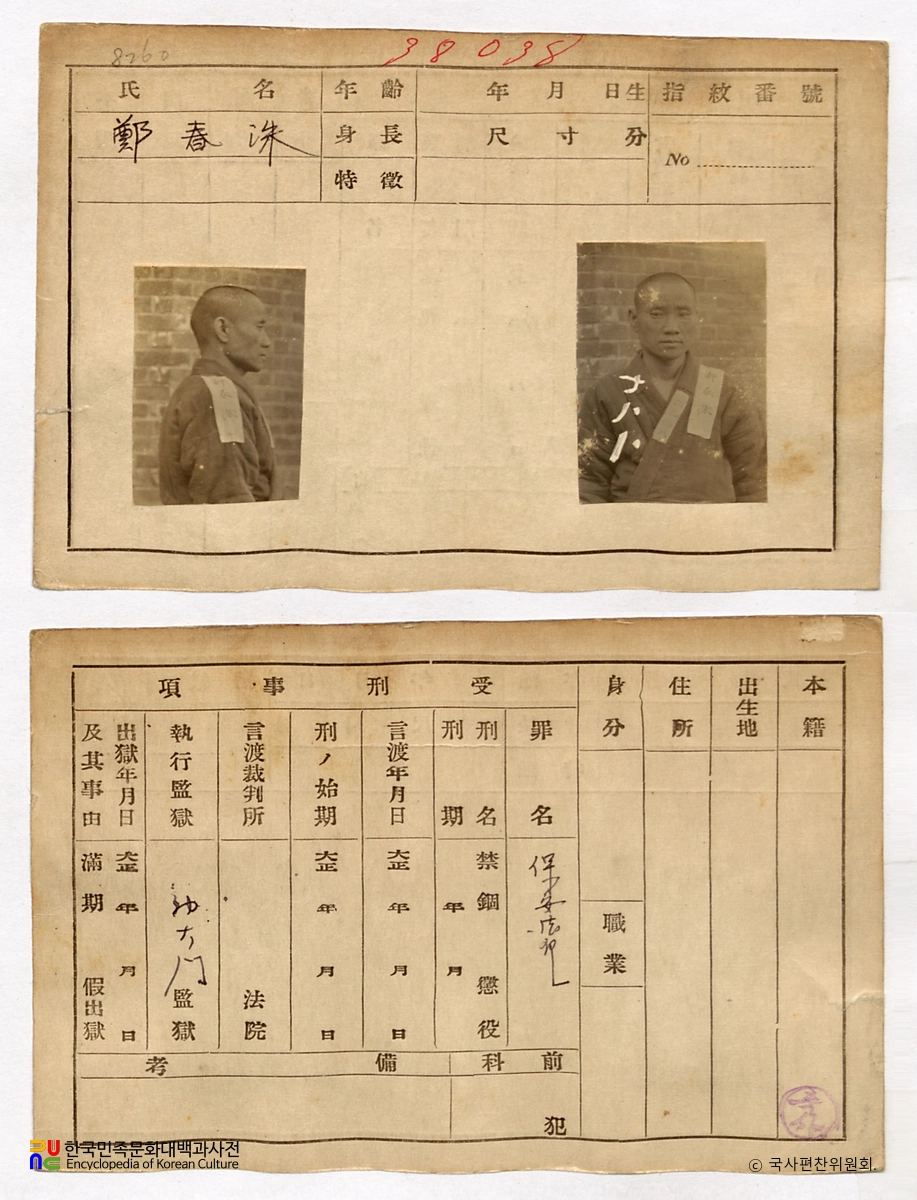 8260
38038
氏名
鄭春洙
年齡 年月日生
身長 尺寸分
特徵
指紋番號
No
本籍
出生地
住所
身分
職業
受刑事項
罪名
保安法
刑名
禁錮 懲役
刑期
年月
言渡年月日
大正 年月日
刑ノ始期
大正 年月日
言渡裁判所
法院
執行監獄
大門監獄
出獄年月日
及其事由
大正 年月日
滿期 假出獄
前科
犯
備考
한국민족문화대백과사전
Encyclopedia of Korean Culture
© 국사편찬위원회.